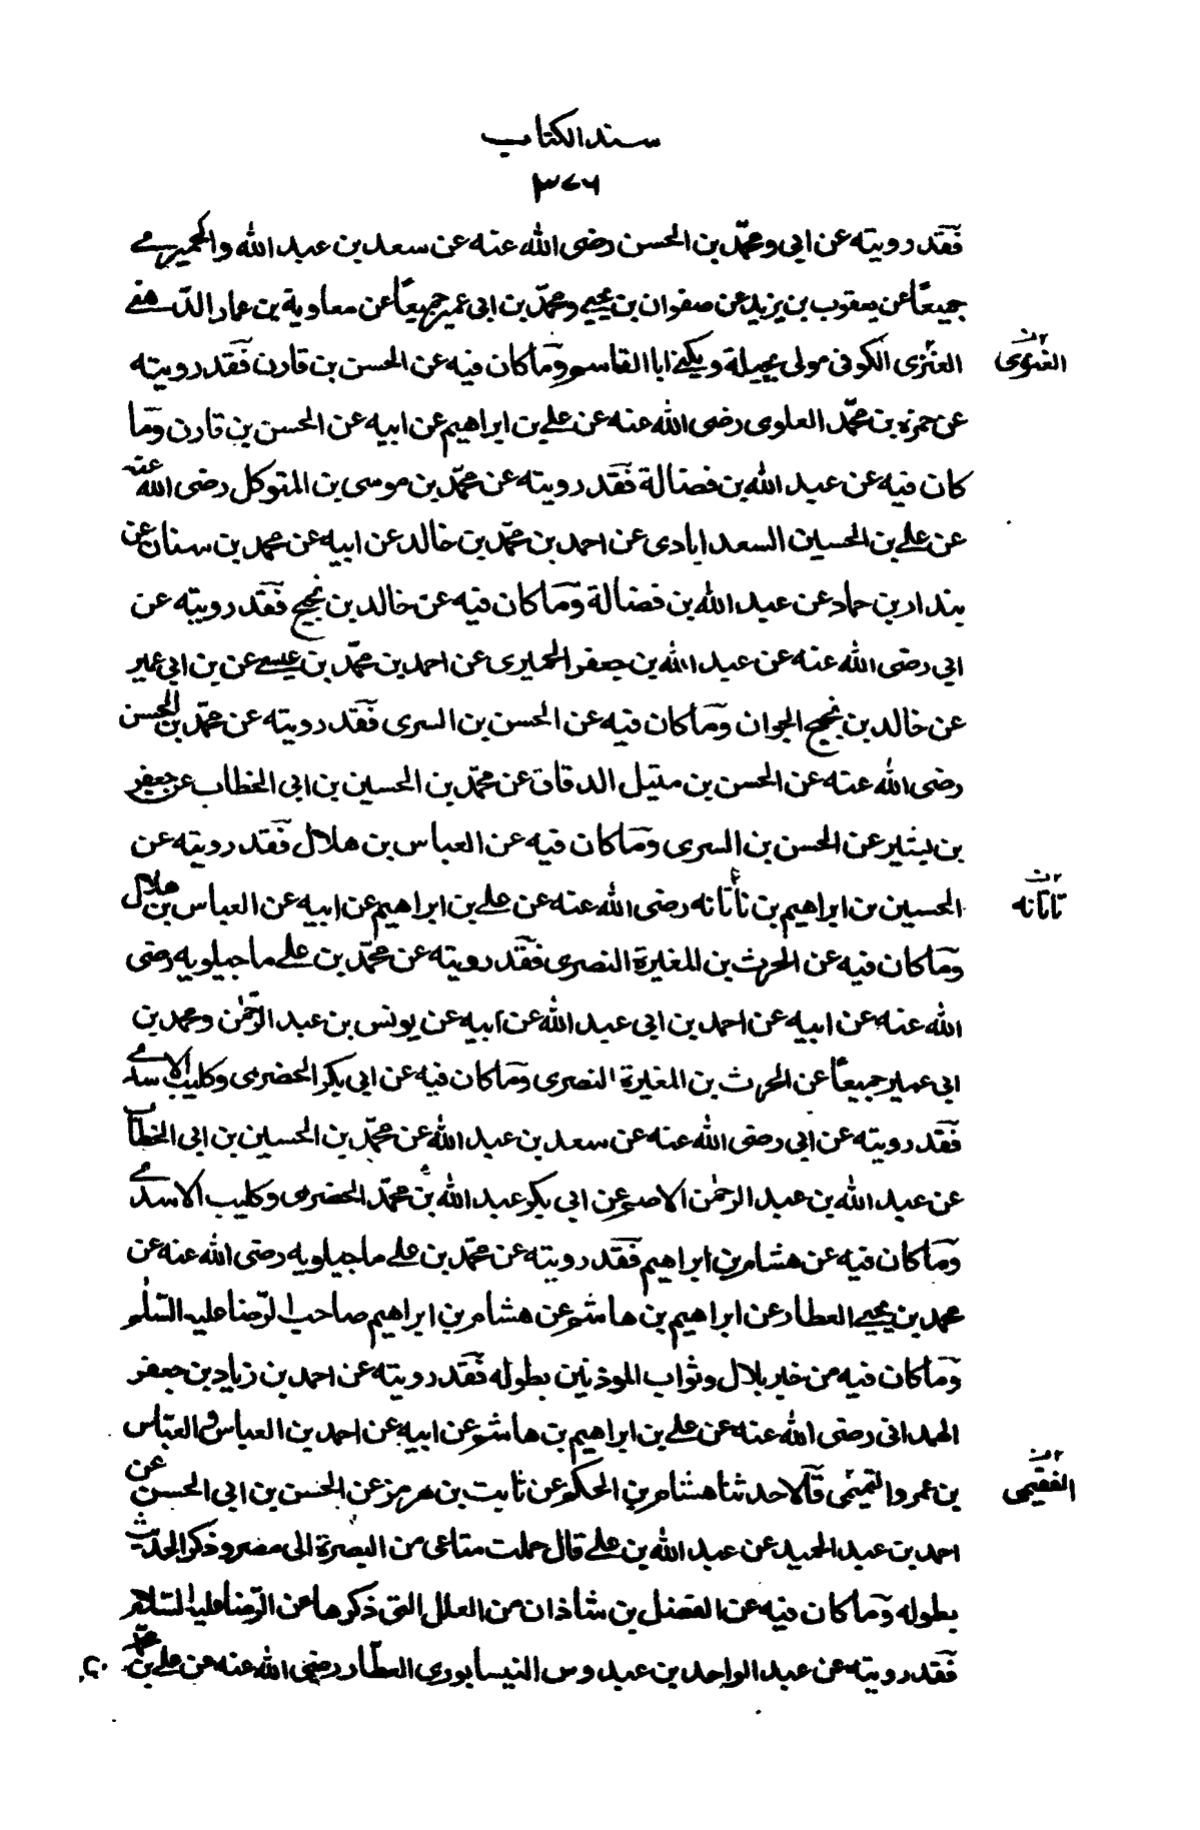 سند الكتاب
٣٧٦
فقد رويته عن ابي و محمّد بن الحسن رضى الله عنه عن سعد بن عبد الله والحميرى
جميعًا عن يعقوب بن يزيد عن صفوان بن يحيى ومحمّد بن ابى عمير جميعًا عن معاوية بن عمار الدّهنى
العنزى الكوفى مولى بجيلة ويكنى ابا القاسم ومآ كان فيه عن الحسن بن قارن فقد رويته
الغنوى
عن حمزه بن محمّد العلوى رضى الله عنه عن على بن ابراهيم عن ابيه عن الحسن بن قارن ومآ
كان فيه عن عبد الله بن فضالة فقد رويته عن محمّد بن موسى بن المتوكل رضى الله عنه
عن على بن الحسين السعد ابادى عن احمد بن محمّد بن خالد عن ابيه عن محمد بن سنان عن
بندار بن حماد عن عبد الله بن فضالة ومآ كان فيه عن خالد بن نجيح فقد رويته عن
ابي رضى الله عنه عن عبد الله بن جعفر الحميرى عن احمد بن محمّد بن عيسى عن بن ابي عمير
عن خالد بن نجيح الجوان ومآ كان فيه عن الحسن بن السرى فقد رويته عن محمّد بن الحسن
رضى الله عنه عن الحسن بن متيل الدقاق عن محمّد بن الحسين بن ابى الخطاب عن جعفر
بن بشير عن الحسن بن السرى ومآ كان فيه عن العباس بن هلال فقد رويته عن
الحسين بن ابراهيم بن ناتانه رضى الله عنه عن على بن ابراهيم عن ابيه عن العباس بن هلال
تاتانه
ومآ كان فيه عن الحرث بن المغيرة النصرى فقد رويته عن محمّد بن على ماجيلويه رضى
الله عنه عن ابيه عن احمد بن ابى عبد الله عن ابيه عن يونس بن عبد الرّحمٰن ومحمد بن
ابى عمير جميعًا عن الحرث بن المغيرة النصرى ومآ كان فيه عن ابي بكر الحضرمى وكليب الاسدى
فقد رويته عن ابى رضى الله عنه عن سعد بن عبد الله عن محمّد بن الحسين بن ابى الخطاب
عن عبد الله بن عبد الرحمٰن الاصم عن ابى بكر عبد الله بن محمّد الحضرمى وكليب الاسدى
ومآ كان فيه عن هشام بن ابراهيم فقد رويته عن محمّد بن على ماجيلويه رضى الله عنه عن
محمد بن يحيى العطار عن ابراهيم بن هاشم عن هشام بن ابراهيم صاحب الرّضا عليه السّلٰم
ومآ كان فيه من خبر بلال وثواب الموذنين بطوله فقد رويته عن احمد بن زياد بن جعفر
الهمدانى رضى الله عنه عن على بن ابراهيم بن هاشم عن ابيه عن احمد بن العباس و العبّاس
بن عمرو التميمى قآلا حدثنا هشام بن الحكم عن ثابت بن هرمز عن الحسن بن ابى الحسن عن
الفقيمى
احمد بن عبد الحميد عن عبد الله بن على قال حملت متاعى من البصرة الى مصر وذكر الحديث
بطوله ومآ كان فيه عن الفضل بن شاذان من العلل التى ذكرها عن الرّضا عليه السّلام
فقد رويته عن عبد الواحد بن عبدوس النيسابورى العطّار رضى الله عنه عن على بن محمّد